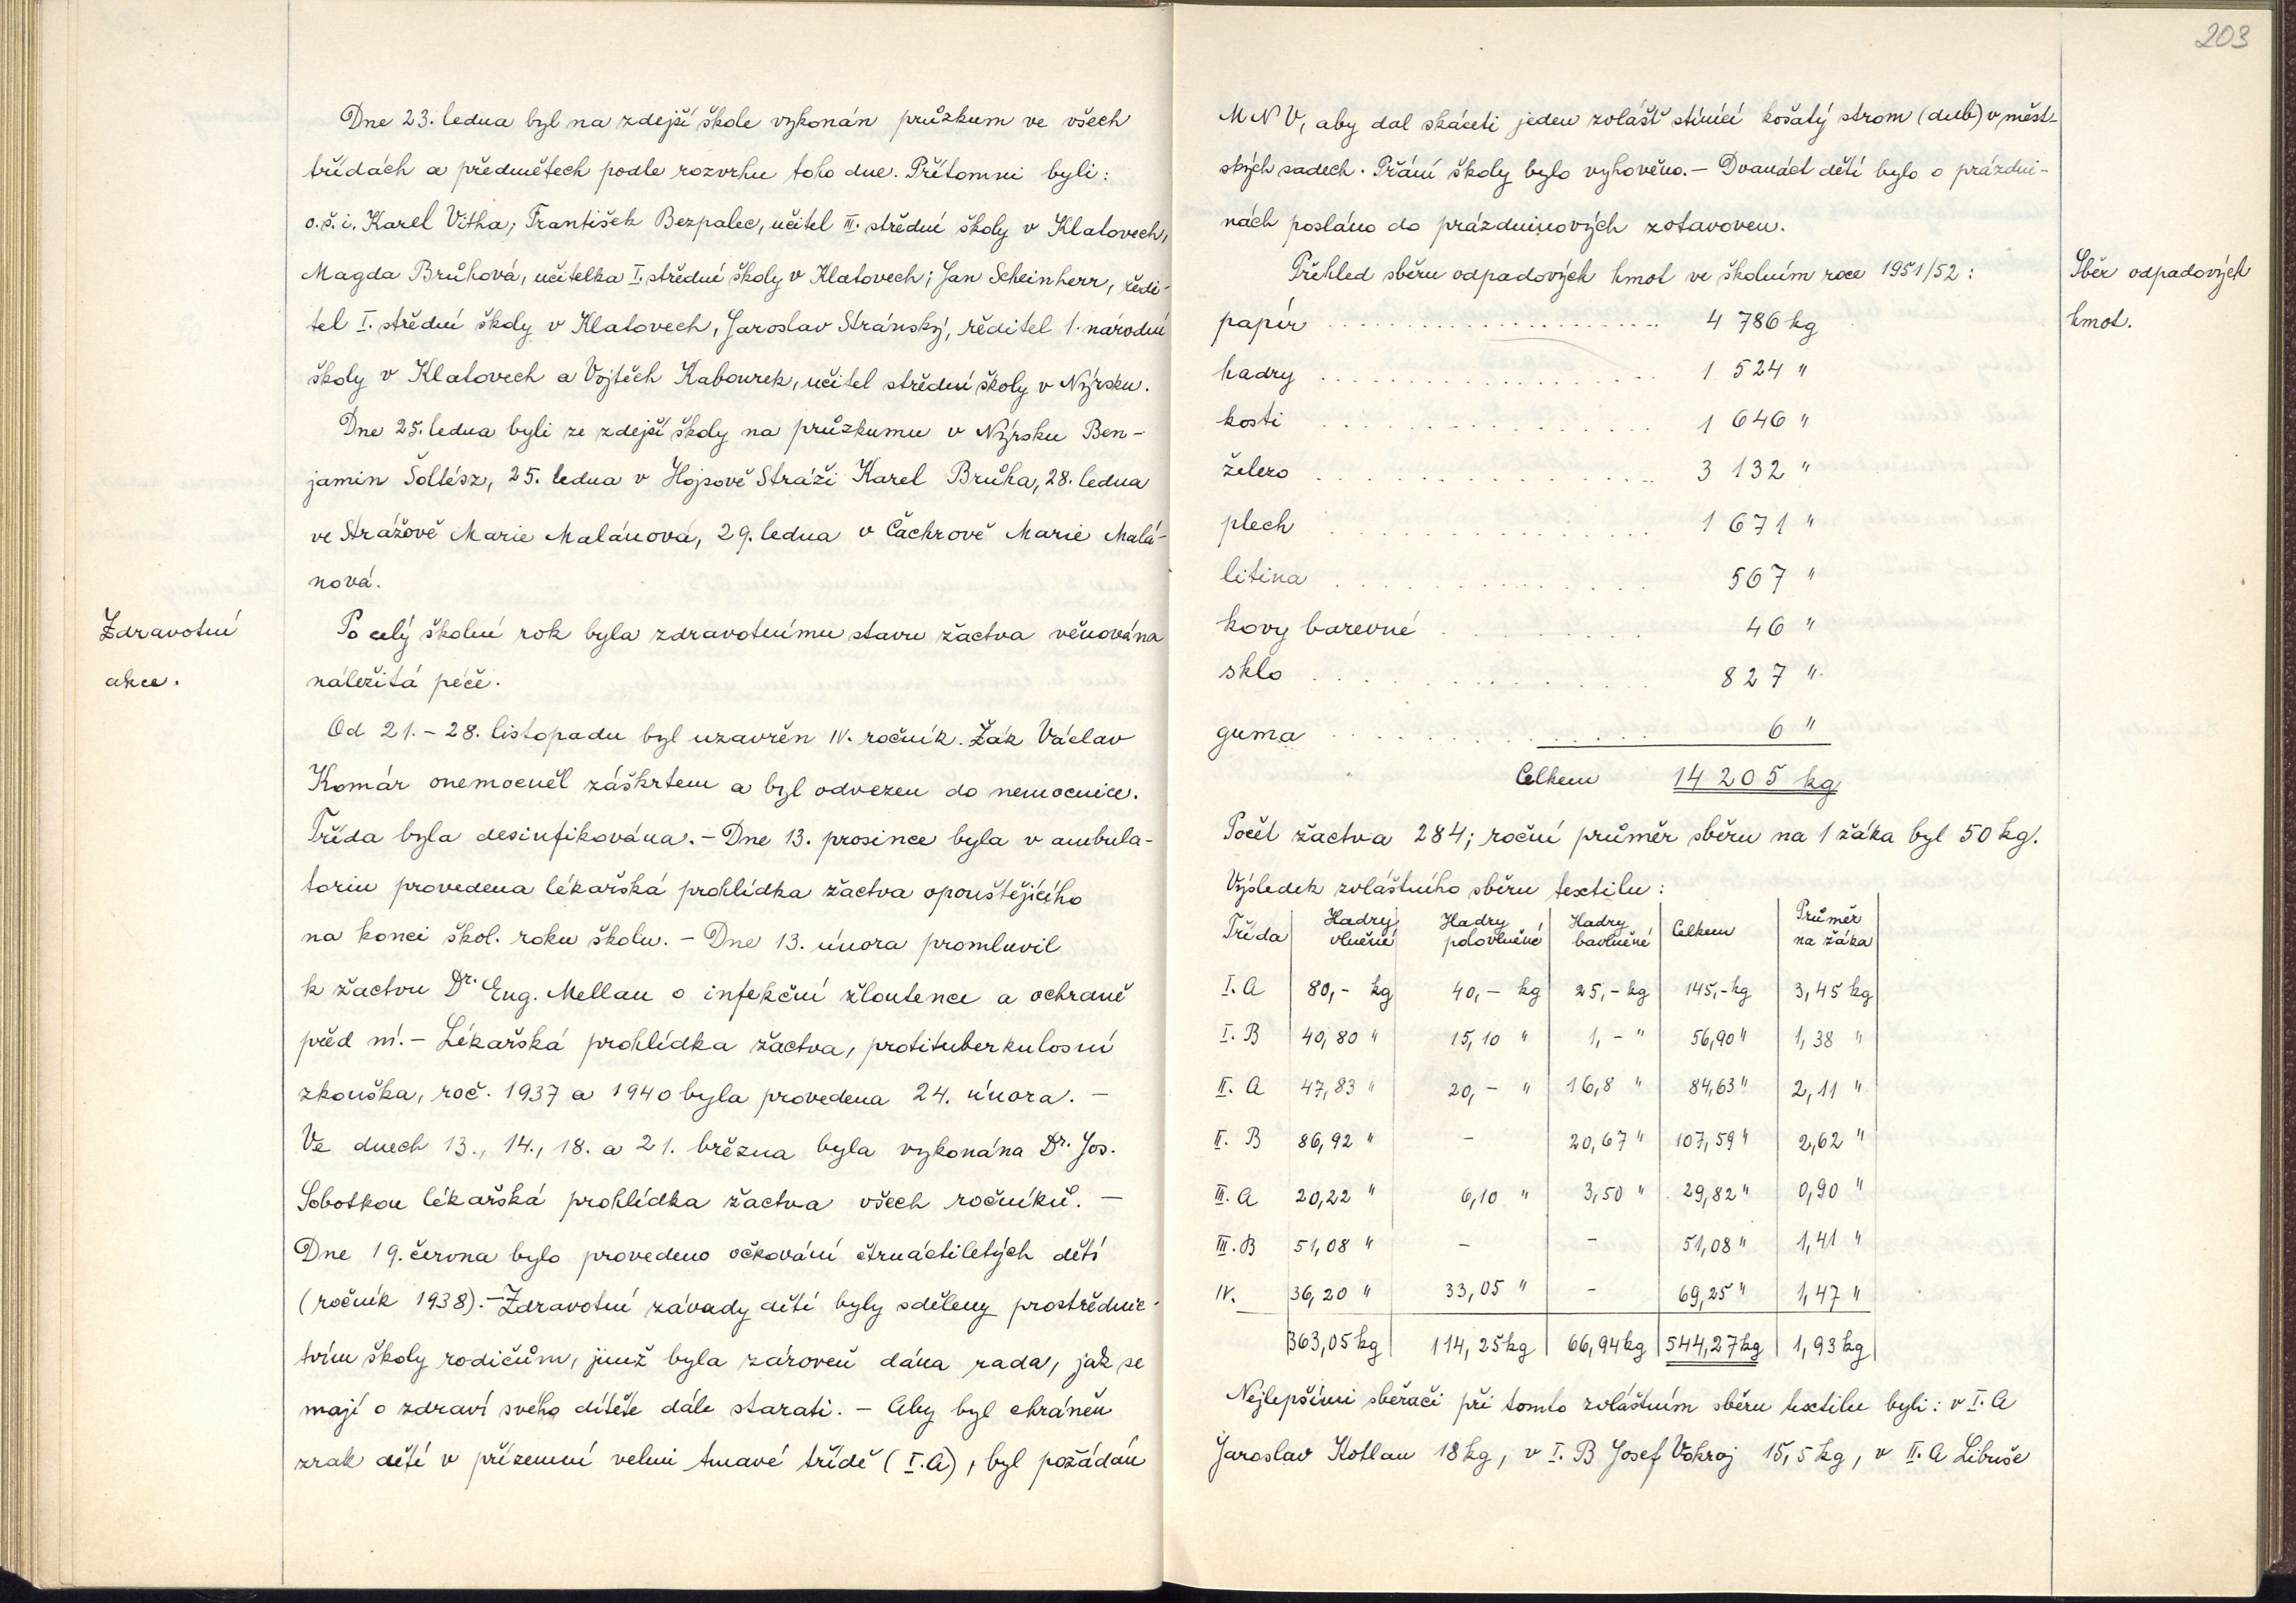 Dne 23. ledna byl na zdejší škole vykonán průzkum ve všech
třídách a předmětech podle rozvrhu toho dne. Přítomni byli:
o.š.i. Karel Vitha; František Bezpalec, učitel III. střední školy v Klatovech,
Magda Brůhová, učitelka I. střední školy v Klatovech; Jan Scheinherr, ředi-
tel I. střední školy v Klatovech, Jaroslav Stránský, ředitel 1. národní
školy v Klatovech a Vojtěch Kabourek, učitel střední školy v Nýrsku.
Dne 25. ledna byli ze zdejší školy na průzkumu v Nýrsku Ben-
jamin Šoltész, 25. ledna v Hojsově Stráži Karel Brůha, 28. ledna
ve Strážově Marie Malánová, 29. ledna v Čachrově Marie Malá-
nová.
Zdravotní
akce.
Po celý školní rok byla zdravotnímu stavu žactva věnována
náležitá péče.
Od 21. - 28. listopadu byl uzavřen IV. ročník. Žák Václav
Komár onemocněl záškrtem a byl odvezen do nemocnice.
Třída byla desinfikována. - Dne 13. prosince byla v ambula-
toriu provedena lékařská prohlídka žactva opouštějícího
na konci škol. roku školu. - Dne 13. února promluvil
k žactvu Dr. Eug. Mellan o infekční žloutence a ochraně
před ní. - Lékařská prohlídka žactva, protituberkulosní
zkouška, roč. 1937 a 1940 byla provedena 24. února. -
Ve dnech 13., 14., 18. a 21. března byla vykonána Dr. Jos.
Sobotkou lékařská prohlídka žactva všech ročníků. -
Dne 19. června bylo provedeno očkování čtrnáctiletých dětí
(ročník 1938). - Zdravotní závady dětí byly sděleny prostřednic-
tvím školy rodičům, jimž byla zároveň dána rada, jak se
mají o zdraví svého dítěte dále starati. - Aby byl chráněn
zrak dětí v přízemní velmi tmavé třídě (I.A), byl požádán
203
MNV, aby dal skáceti jeden zvlášť stínící košatý strom (dub) v měst-
ských sadech. Přání školy bylo vyhověno. - Dvanáct dětí bylo o prázdni-
nách posláno do prázdninových zotavoven.
Sběr odpadových
hmot.
Přehled sběru odpadových hmot ve školním roce 1951/52:
papír . . . . . . . . . . 4 786 kg
hadry . . . . . . . . . . 1 524 "
kosti . . . . . . . . . . 1 646 "
železo . . . . . . . . . . 3 132 "
plech . . . . . . . . . . 1 671 "
litina . . . . . . . . . . 567 "
kovy barevné . . . . . . . 46 "
sklo . . . . . . . . . . 827 "
guma . . . . . . . . . . 6 "
Celkem 14 205 kg
Počet žactva 284; roční průměr sběru na 1 žáka byl 50 kg.
Výsledek zvláštního sběru textilu:
Třída | Hadry vlněné | Hadry polovlněné | Hadry bavlněné | Celkem | Průměr na žáka
I. A | 80,- kg | 40,- kg | 25,- kg | 145,- kg | 3,45 kg
I. B | 40,80 " | 15,10 " | 1,- " | 56,90 " | 1,38 "
II. A | 47,83 " | 20,- " | 16,8 " | 84,63 " | 2,11 "
II. B | 86,92 " | - | 20,67 " | 107,59 " | 2,62 "
III. A | 20,22 " | 6,10 " | 3,50 " | 29,82 " | 0,90 "
III. B | 51,08 " | - | - | 51,08 " | 1,41 "
IV. | 36,20 " | 33,05 " | - | 69,25 " | 1,47 "
363,05 kg | 114,25 kg | 66,94 kg | 544,27 kg | 1,93 kg
Nejlepšími sběrači při tomto zvláštním sběru textilu byli: v I. A
Jaroslav Kotlan 18 kg, v I. B Josef Vokroj 15,5 kg, v II. A Libuše